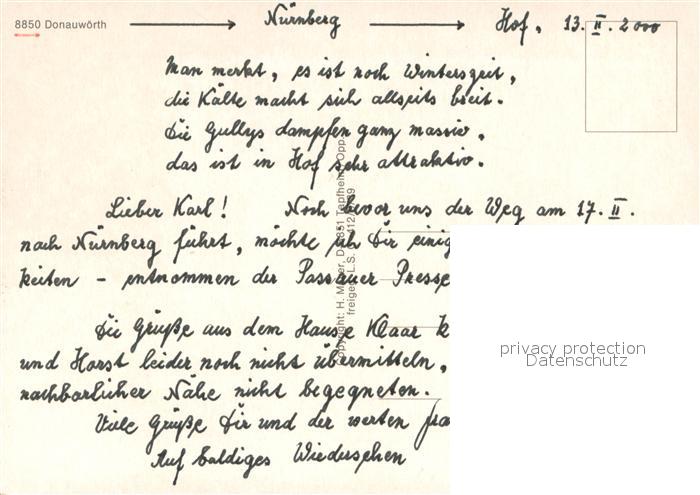 8850 Donauwörth → Nürnberg → Hof, 13. II. 2000
Man merkt, es ist noch Winterszeit,
die Kälte macht sich allseits breit.
Die Gullys dampfen ganz massiv,
das ist in Hof sehr attraktiv.
Lieber Karl! Noch bevor uns der Weg am 17. II.
nach Nürnberg führt, möchte ich Dir einig
keiten – entnommen der Passauer Presse
Die Grüße aus dem Hause Klaar k
und Horst leider noch nicht übermitteln,
nachbarlicher Nähe nicht begegneten.
Viele Grüße Dir und der werten
Auf baldiges Wiedersehen
privacy protection
Datenschutz